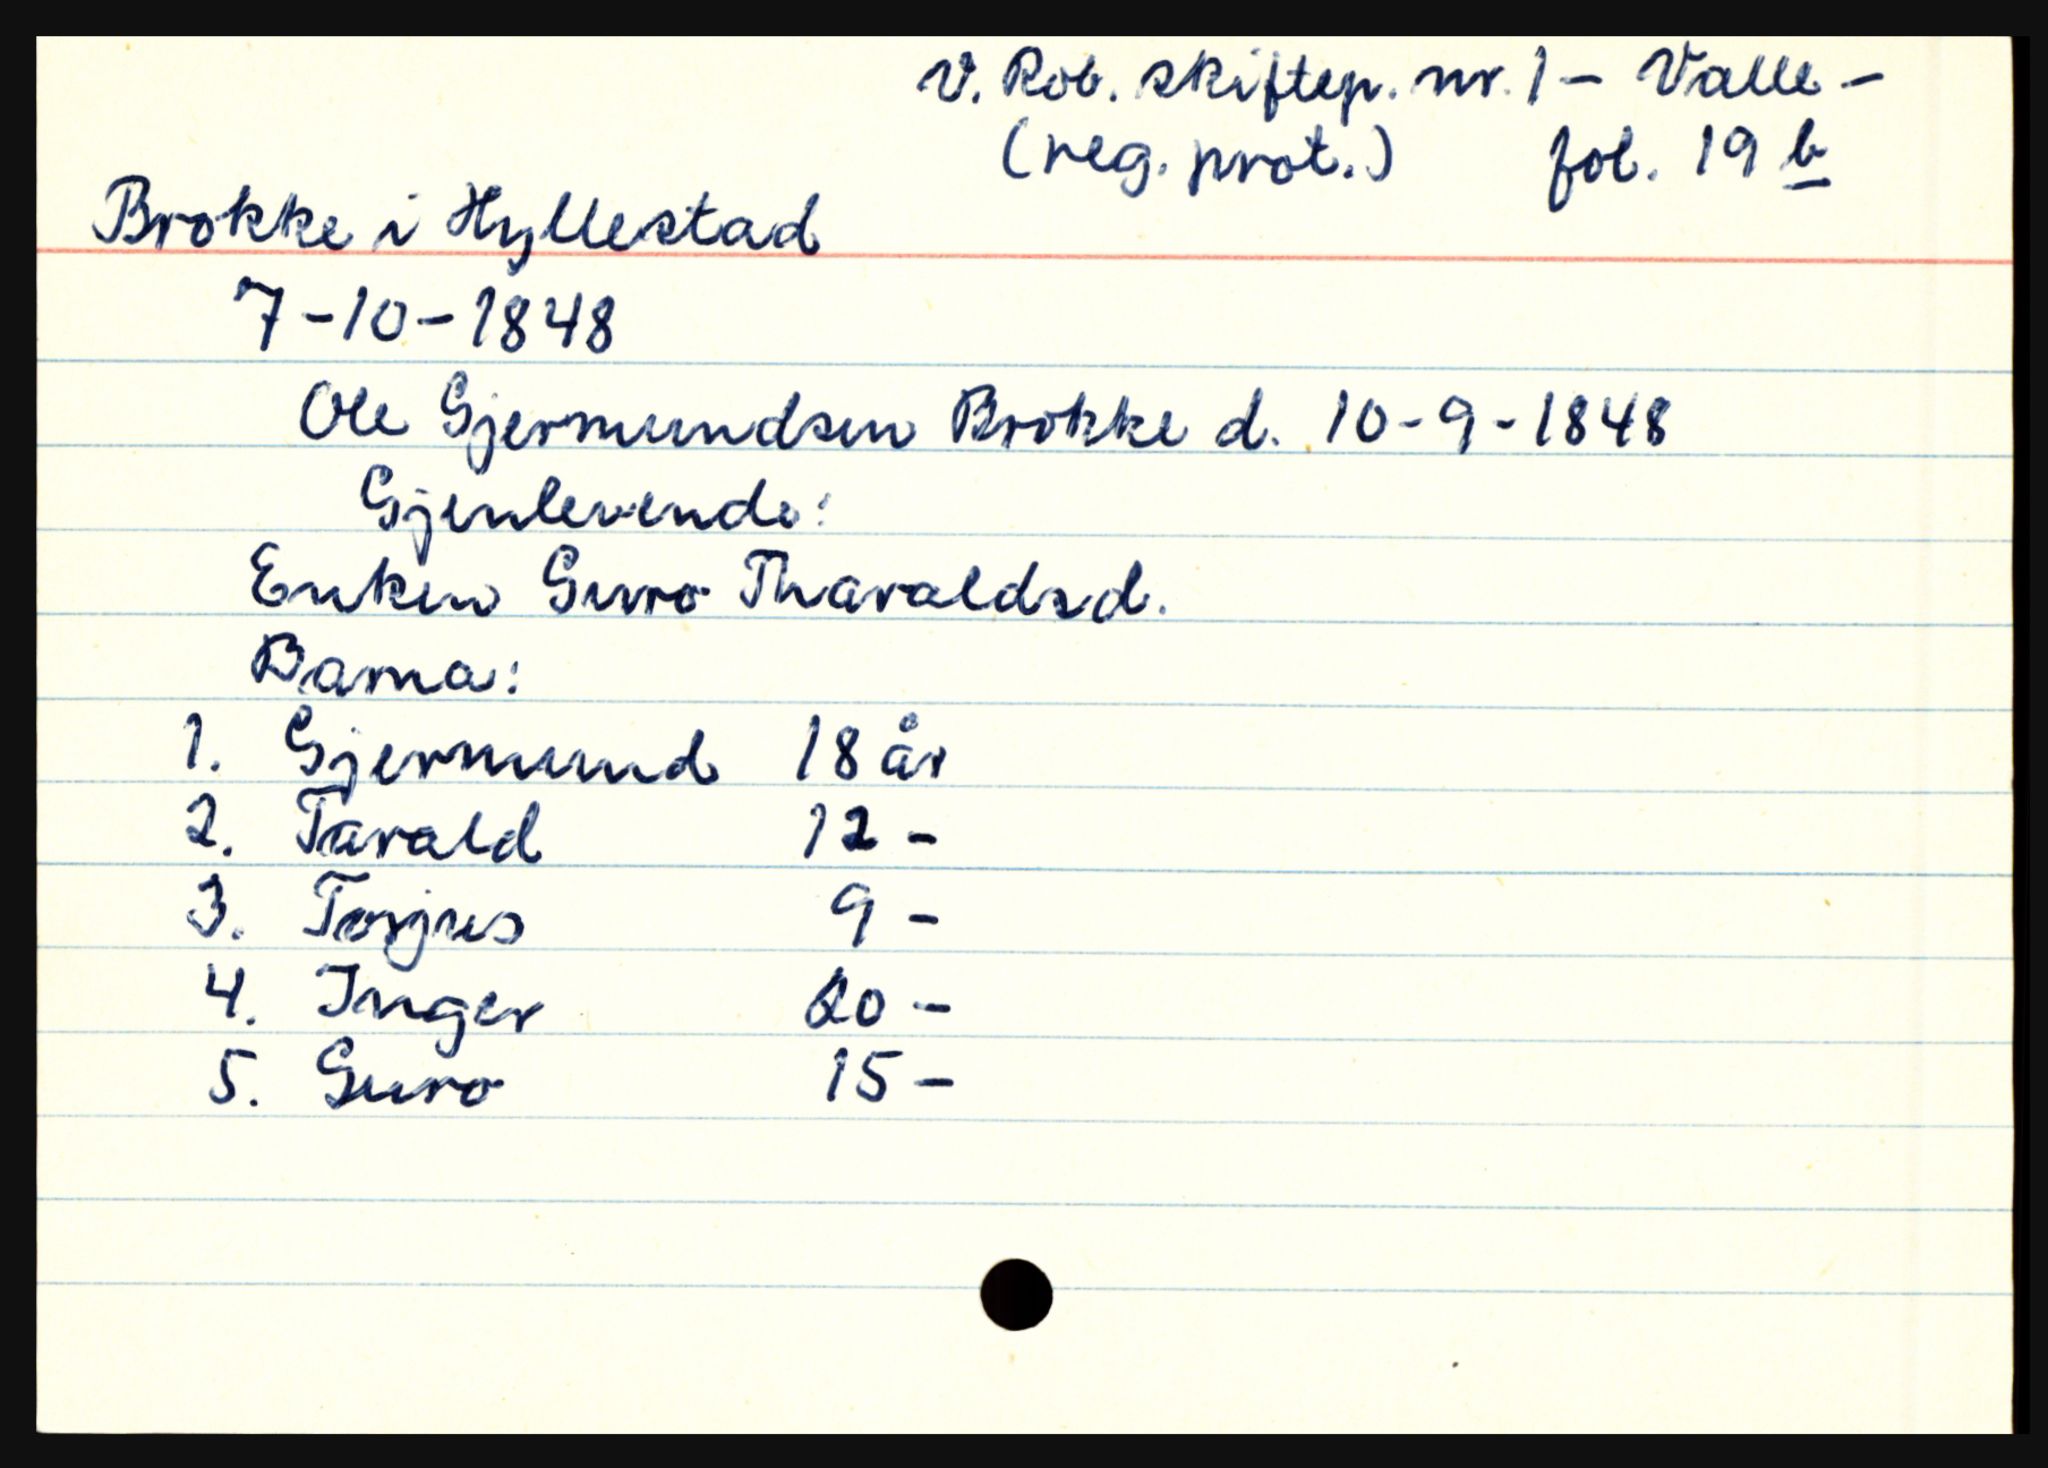 V. Rob. skiftep. nr. 1 – Valle –
(reg. prot.) fol. 19 b
Brokke i Hyllestad
7-10-1848
Ole Gjermundsen Brokke d. 10-9-1848
Gjenlevende:
Enken Guro Tharaldsd.
Barna:
1. Gjermund 18 år
2. Tarald 12 -
3. Torjus 9 -
4. Inger 20 -
5. Guro 15 -